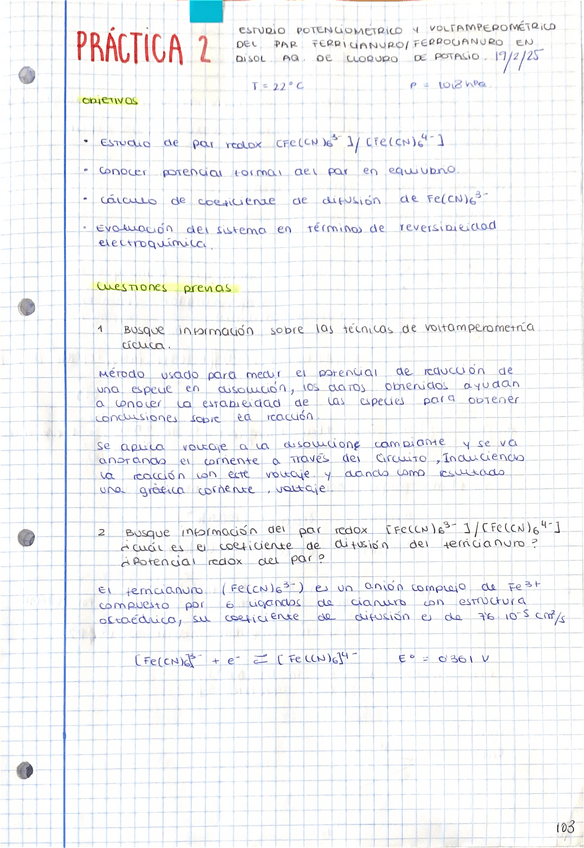 PRÁCTICA 2
ESTUDIO POTENCIOMETRICO Y VOLTAMPEROMÉTRICO
DEL PAR FERRICIANURO/FERROCIANURO EN
DISOL AQ. DE CLORURO DE POTASIO. 19/2/25
T = 22°C P = 1018 hPa.
OBJETIVOS
• ESTUDIO de par redox [Fe(CN)6^3-]/[Fe(CN)6^4-]
• Conocer potencial formal del par en equilibrio.
• Cálculo de coeficiente de difusión de Fe(CN)6^3-
• Evaluación del sistema en términos de reversibilidad
electroquímica.
Cuestiones previas
1 Busque información sobre las técnicas de voltamperometría
cíclica.
Método usado para medir el potencial de reducción de
una especie en disolución, los datos obtenidos ayudan
a conocer la estabilidad de las especies para obtener
conclusiones sobre la reacción.
Se aplica voltaje a la disolucione cambiante y se va
anotando el corriente a través del circuito, induciendo
la reacción con este voltaje y dando como resultado
una gráfica corriente, voltaje.
2 Busque información del par redox [Fe(CN)6^3-]/[Fe(CN)6^4-]
¿Cuál es el coeficiente de difusión del ferricianuro?
¿Potencial redox del par?
El ferricianuro (Fe(CN)6^3-) es un anión complejo de Fe^3+
compuesto por 6 ligandos de cianuro con estructura
octaédrica, su coeficiente de difusión es de 7'6 10^-5 cm²/s
[Fe(CN)6]^3- + e- ⇌ [Fe(CN)6]^4- E° = 0'361 V
103